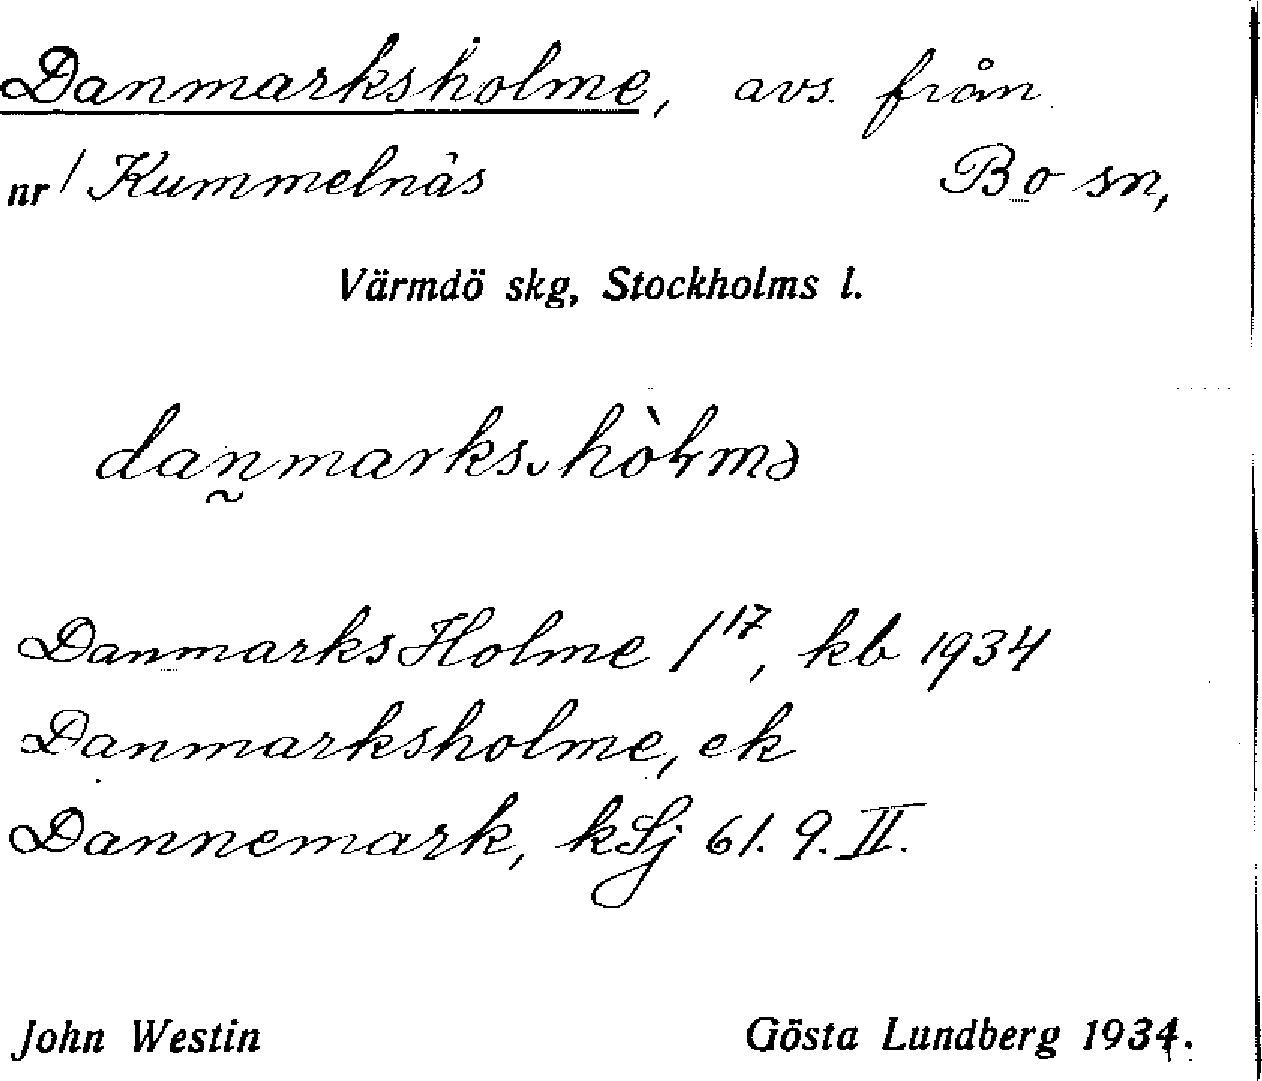 Danmarksholme, avs. från
nr 1 Kummelnäs Bo sn,
Värmdö skg, Stockholms l.
DanmarksHolme 1¹⁷, kb 1934
Danmarksholme, ek
Dannemark, kSj 61. 9. II.
John Westin Gösta Lundberg 1934.